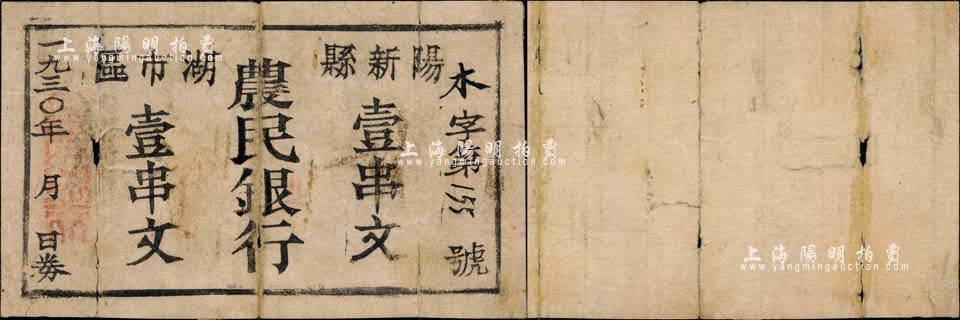 陽新縣
湖市區
木字第155號
壹串文
農民銀行
壹串文
一九三〇年 月 日券
上海陽明拍賣
www.yangmingauction.com
上海陽明拍賣
www.yangmingauction.com
上海陽明拍賣
www.yangmingauction.com